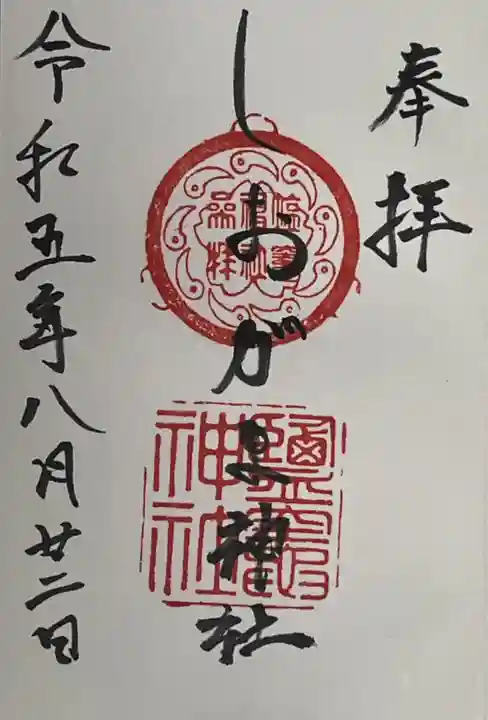 奉拝
しおがま神社
鹽竈神社
令和五年八月廿二日